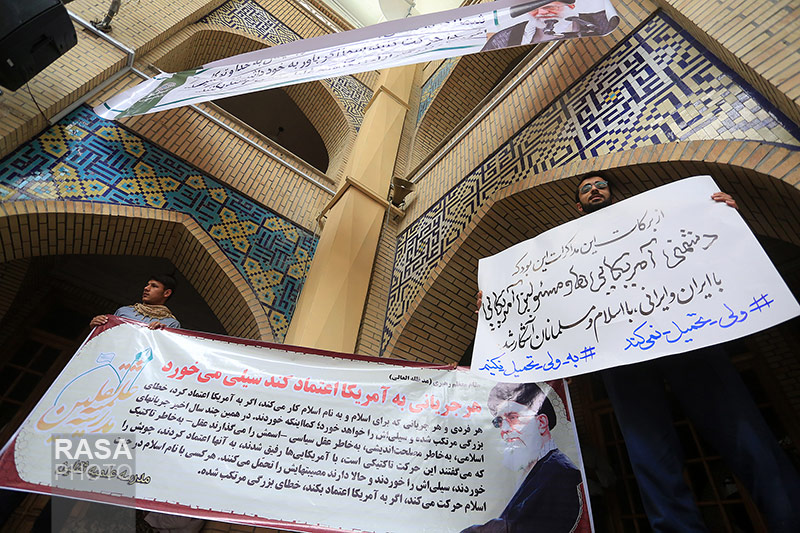 حرکت کنید
از برکات این مذاکرات این بود که
دشمنی آمریکایی‌ها و مسئولین آمریکایی
با ایران و ایرانی، با اسلام و مسلمانان آشکار شد
#ولی_تحمیل_نمی‌کند
#به_ولی_تحمیل_نکنید
مقام معظم رهبری (مد ظله العالی)
هر جریانی به آمریکا اعتماد کند سیلی می‌خورد
هر فردی و هر جریانی که برای اسلام و به نام اسلام کار می‌کند، اگر به آمریکا اعتماد کرد، خطای
بزرگی مرتکب شده و سیلی‌اش را خواهد خورد؛ کمااینکه خوردند. در همین چند سال اخیر جریانهای
اسلامی، به‌خاطر مصلحت‌اندیشی، به‌خاطر عقل سیاسی -اسمش را می‌گذارند عقل- به‌خاطر تاکتیک
که می‌گفتند این حرکت تاکتیکی است، با آمریکایی‌ها رفیق شدند، به آنها اعتماد کردند، چوبش را
خوردند، سیلی‌اش را خوردند و حالا دارند مصیبتهایش را تحمل می‌کنند. هرکسی با نام اسلام در جهت
اسلام حرکت می‌کند، اگر به آمریکا اعتماد بکند، خطای بزرگی مرتکب شده.
RASA
PHOTO